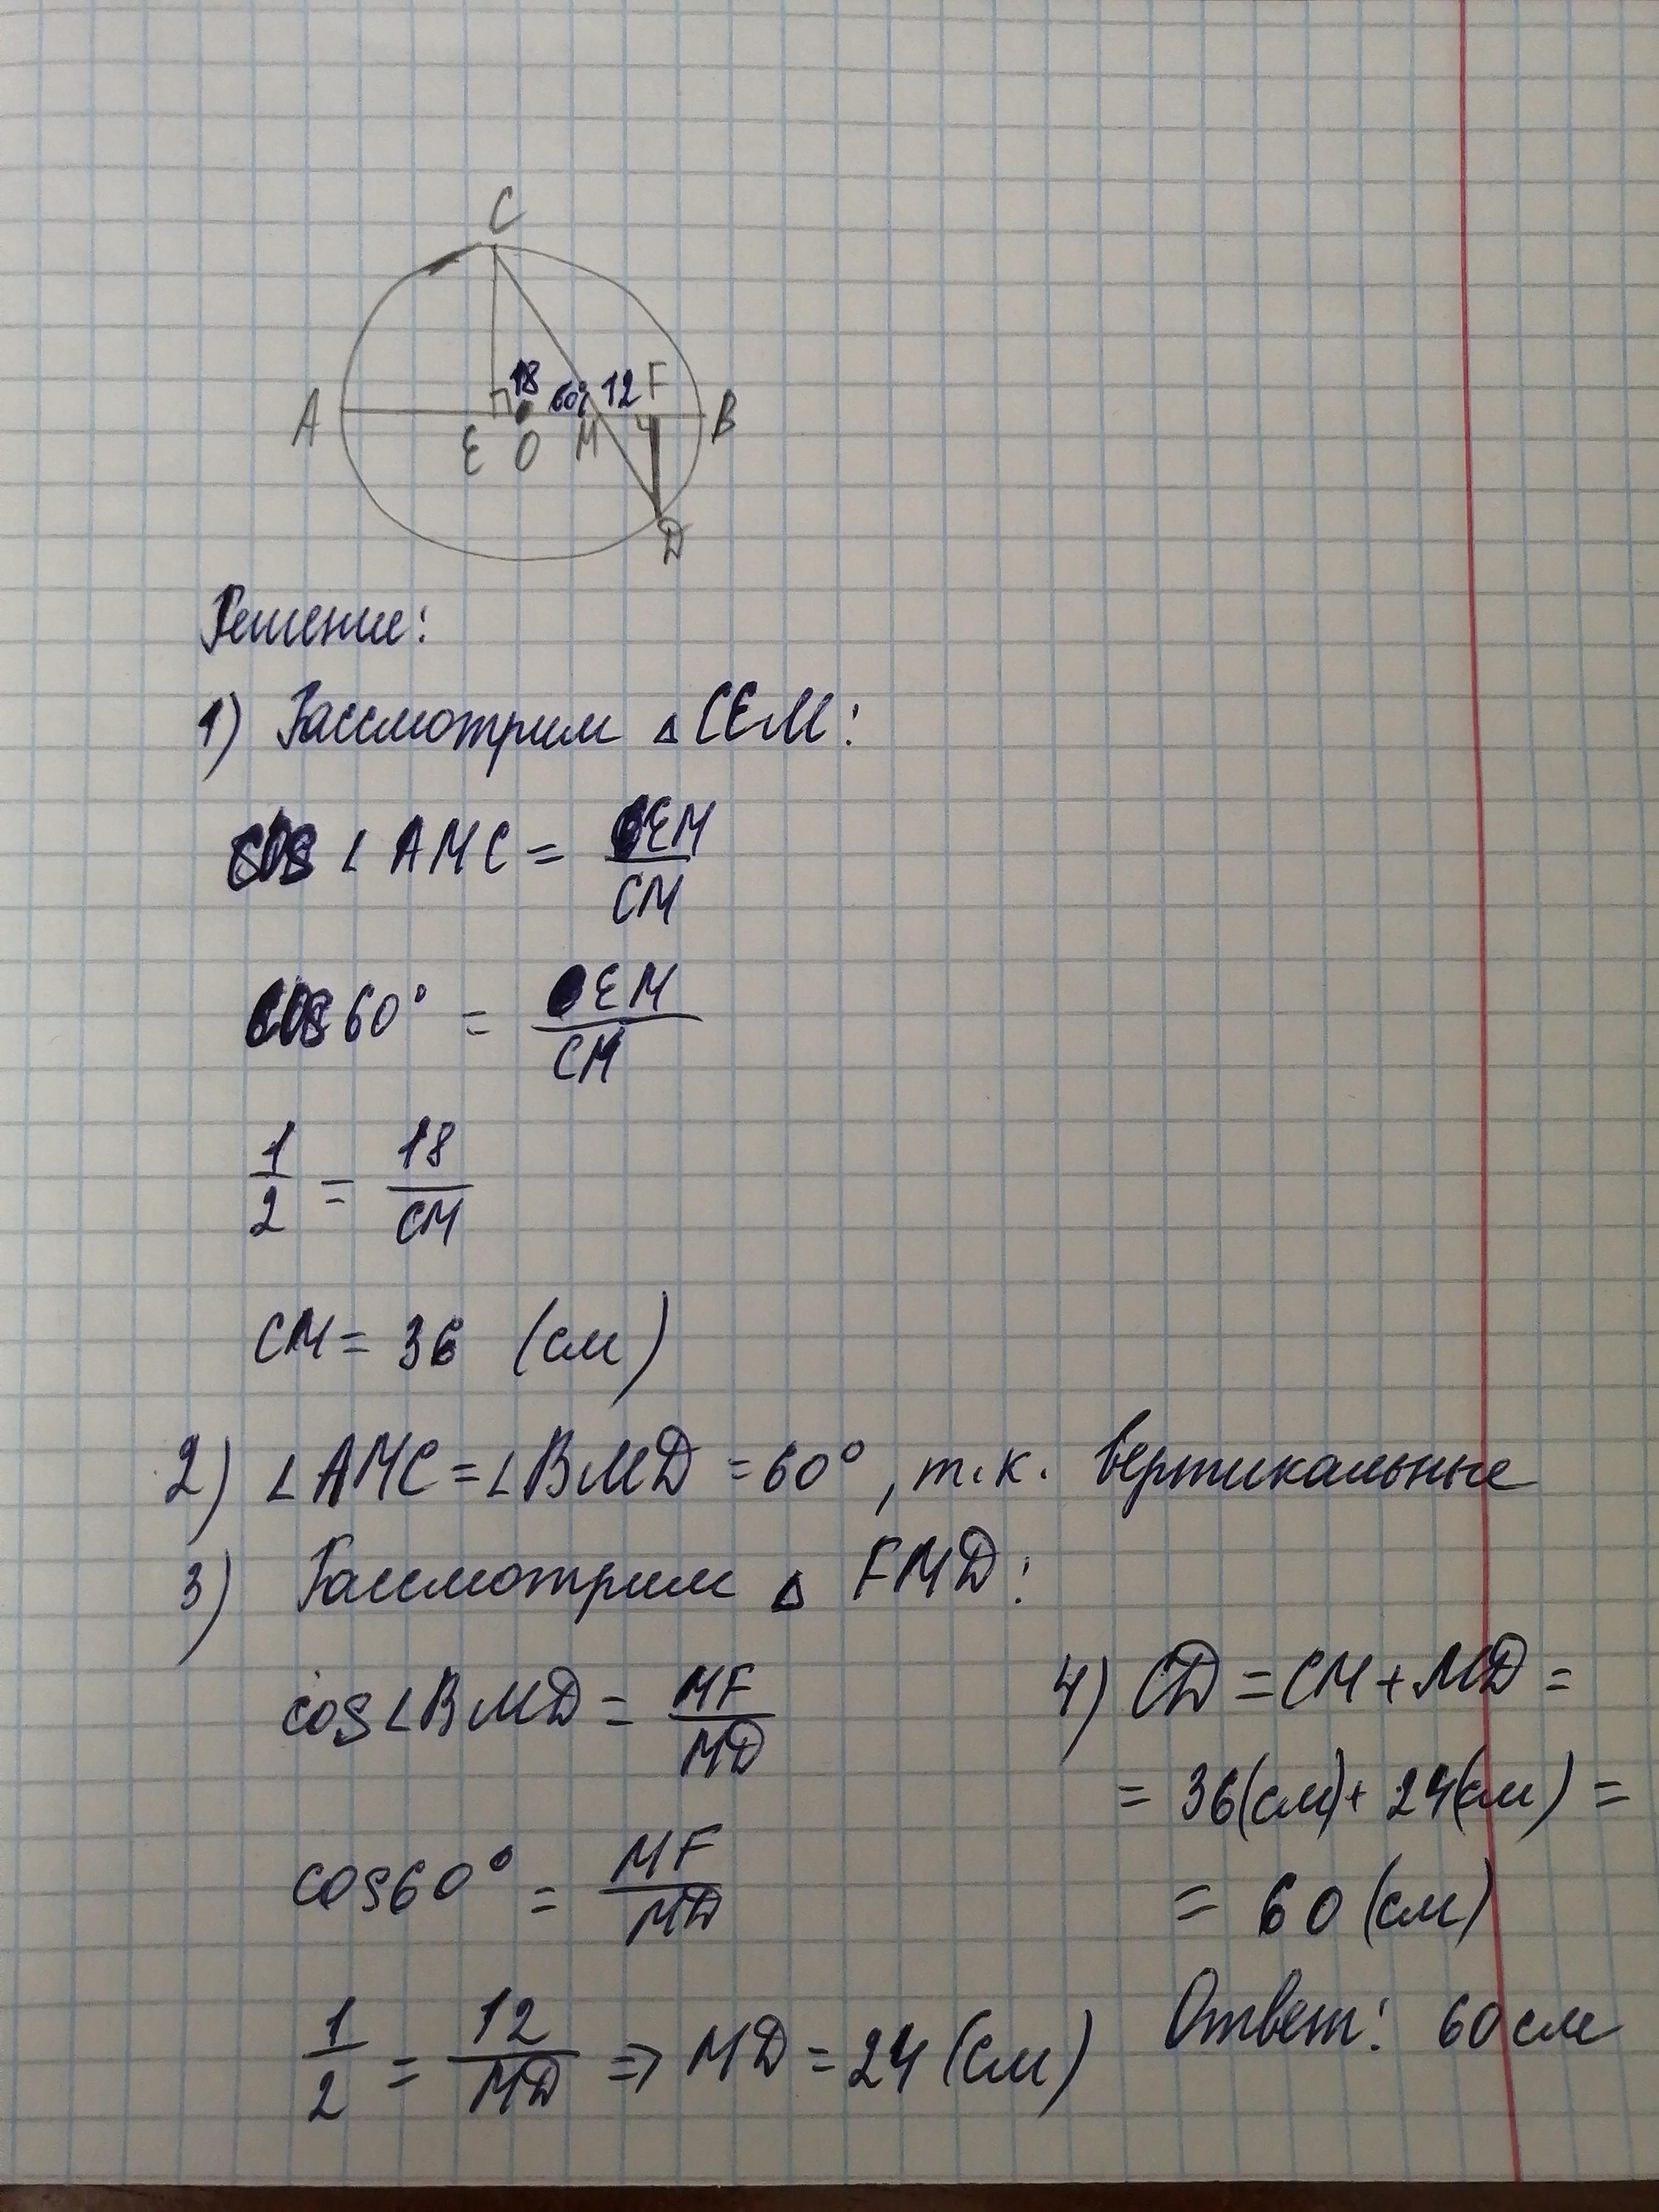 C
A 18 60° 12 F B
E O M
D
Решение:
1) Рассмотрим △CEM:
cos ∠AMC = EM/CM
cos 60° = EM/CM
1/2 = 18/CM
CM = 36 (см)
2) ∠AMC = ∠BMD = 60°, т.к. вертикальные
3) Рассмотрим △ FMD:
cos∠BMD = MF/MD
cos60° = MF/MD
1/2 = 12/MD => MD = 24 (см)
4) CD = CM + MD =
= 36(см) + 24(см) =
= 60 (см)
Ответ: 60 см